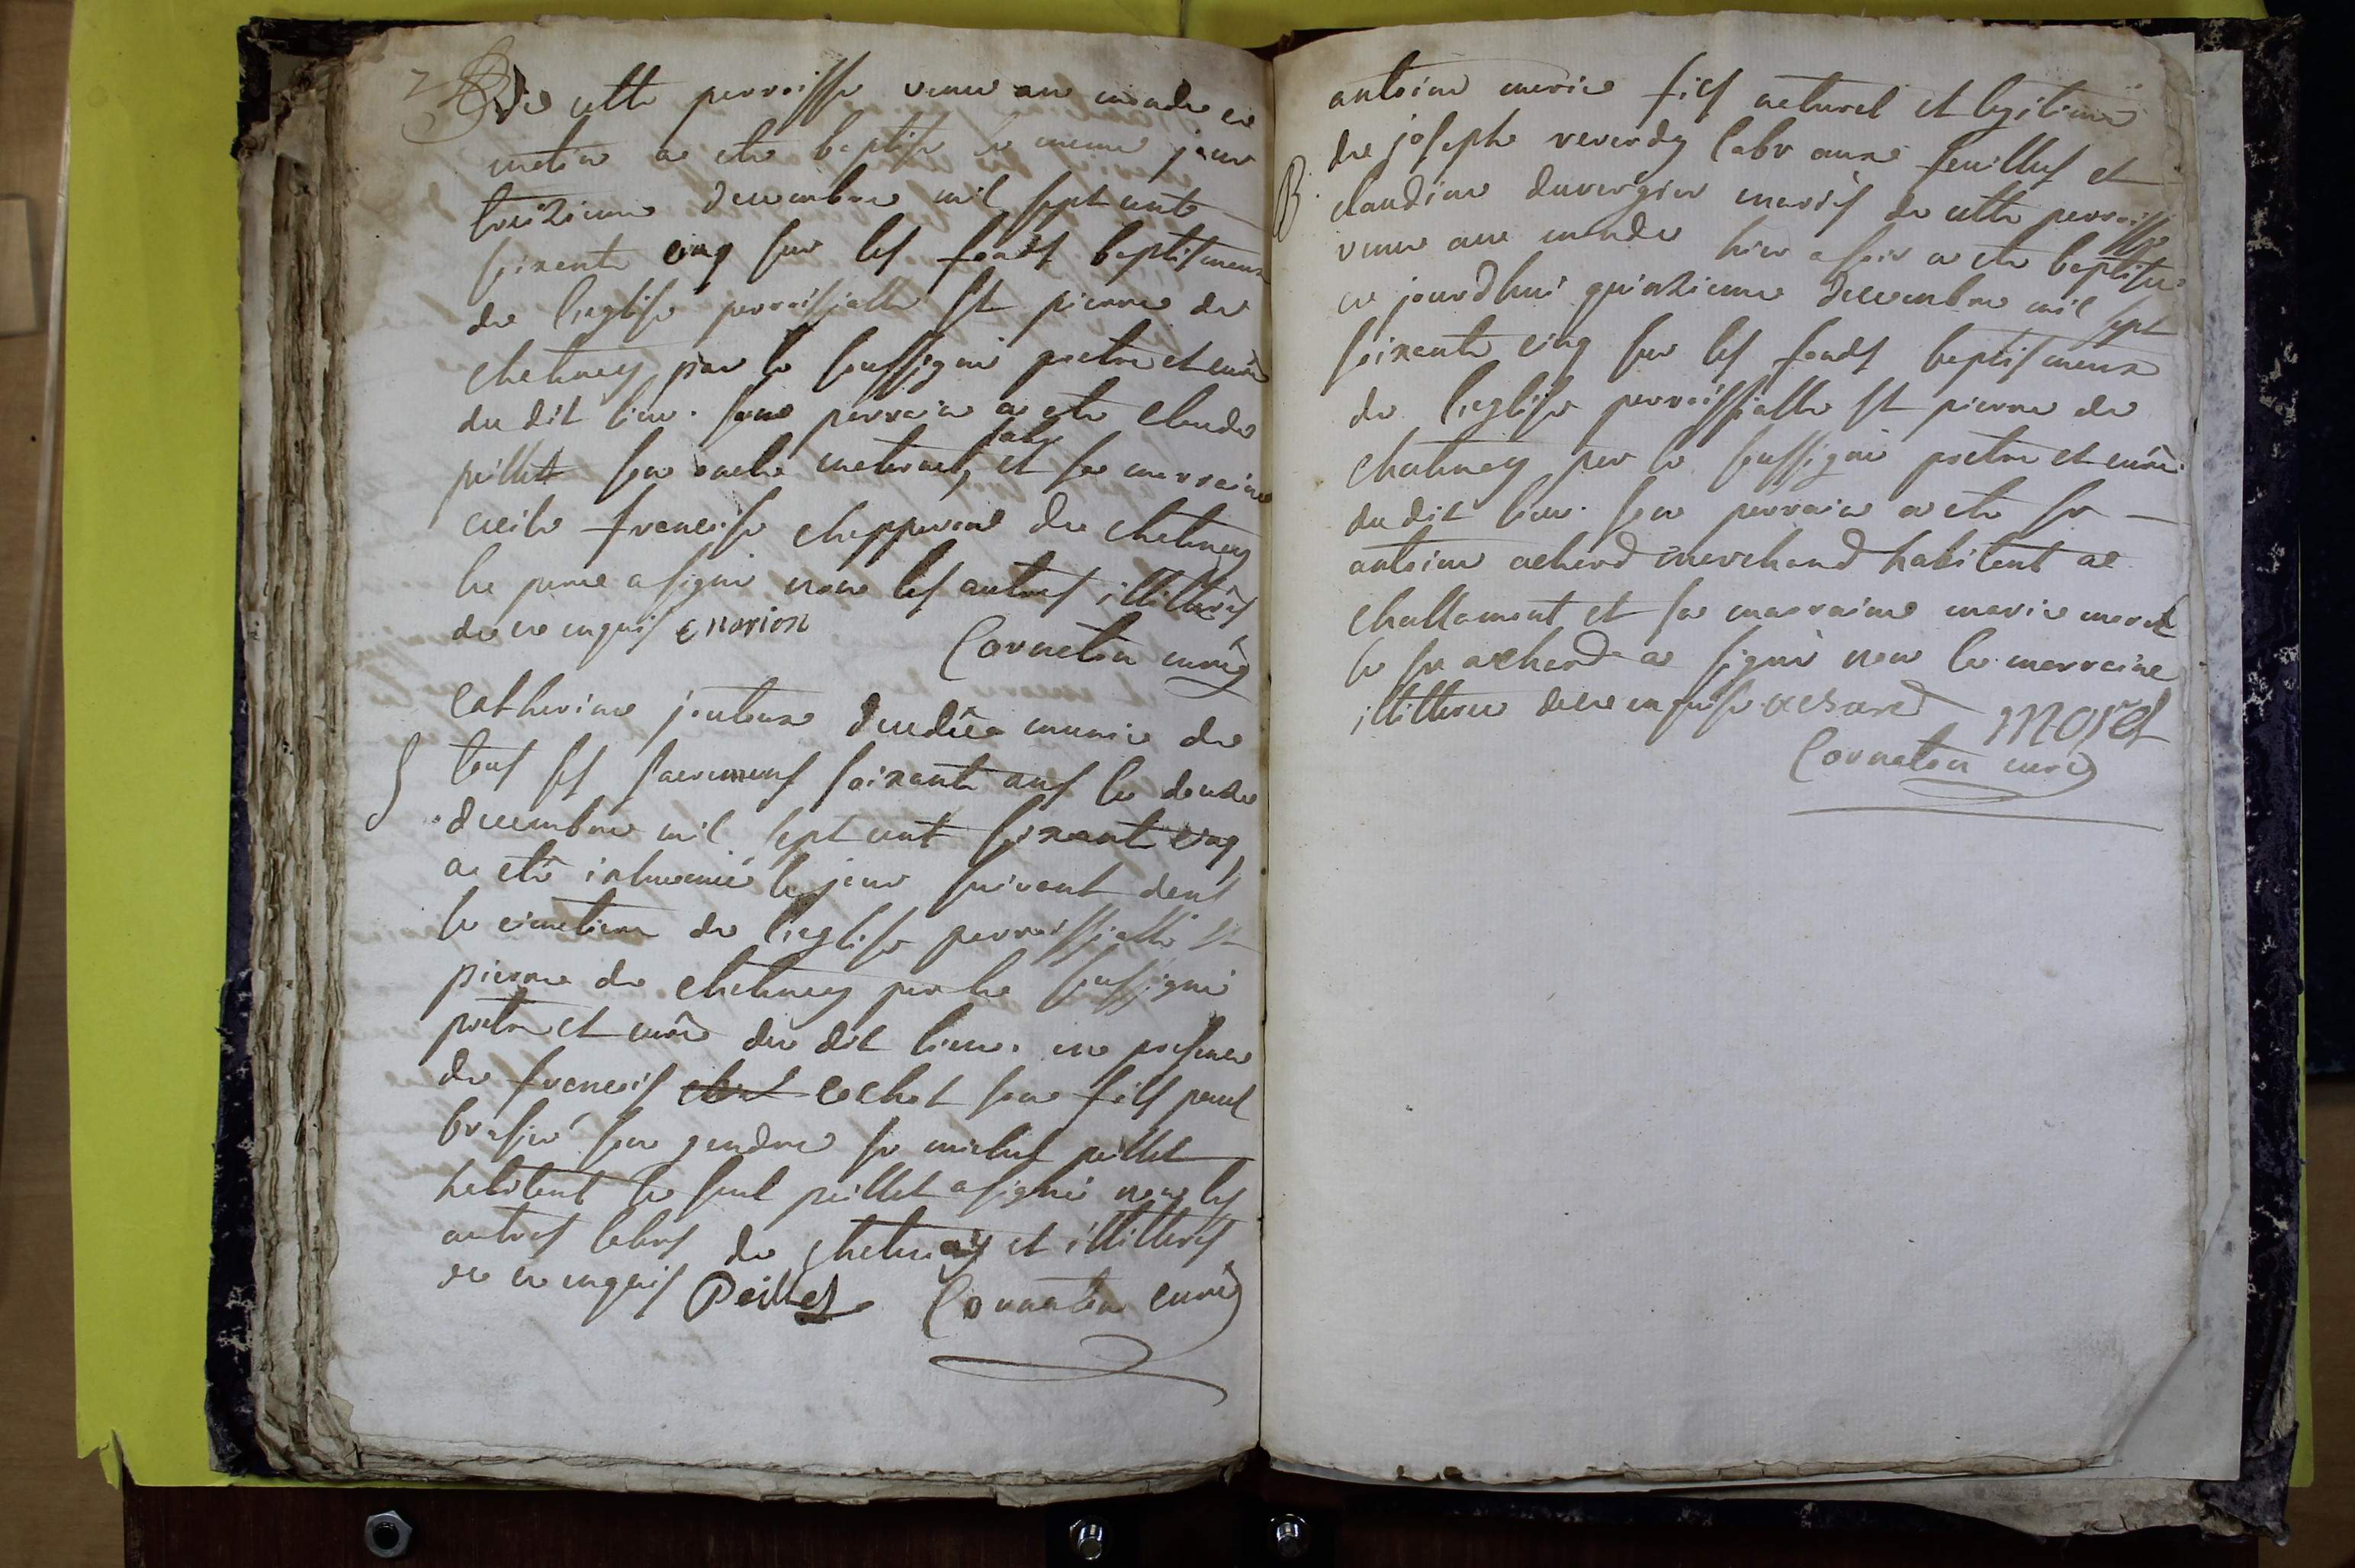 de cette parroisse venu au monde ce
matin a ete baptisé le meme jour
treizieme decembre mil sept cents
soixante cinq sur les fonds baptismaux
de l'eglise parroissialle St pierre de
chatenay par le soussigné pretre et curé
du dit lieu. son parrain a ete claude
pillet son oncle maternel, et sa marraine
cecile francoise de chatenay
le pere a signé non les autres illitterés
de ce enquis
Cornaton curé
catherine munie de
tous ses sacremens soixante ans le douze
decembre mil sept cent soixante cinq
a eté inhumé le jour suivant dans
le cimetiere de l'eglise parroissialle St
pierre de chatenay par le soussigné
pretre et curé du dit lieu. en presence
de francois cochet son fils paul
son gendre sr michel pillet
habitant le seul peillet a signé non les
autres labrs de chatenay et illitterés
de ce enquis Peillet Cornaton curé
antoine marie fils naturel et legitime
de joseph reverdy labr aux feuilles et
B claudine duvergier mariés de cette parroisse
venu au monde hier a soir a ete baptisé
ce jourdhui quinzieme decembre mil sept
soixante cinq sur les fonds baptismaux
de l'eglise parroissialle St pierre de
chatenay par le soussigné pretre et curé
du dit lieu. son parrain a ete sr
antoine achard marchand habitant a
challamont et sa marraine marie morel
le sr achard a signé non la marraine
illitteree de ce enquise achard morel
Cornaton curé